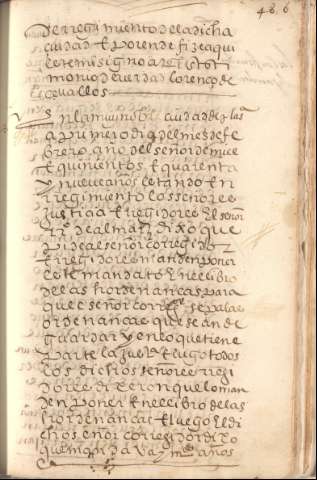 486
de rregimiento de la dicha
ciudad E por ende fize aqui
este mi signo a tal en testi
monio de verdad lorenço de
çevallos
En la muy noble ciudad de
a primero dia del mes de fe
brero año del señor de mill
E quinientos E quarenta
y nueve años estando En
rregimiento los señores
justicia E rregidores El señor
de almaz dixo que
pide al señor corregidor
E rregidores manden poner
este mandato En el libro
de las hordenanças para
que el señor corregidor sepa las
ordenanças que se an de
guardar y en lo que tiene
parte la juez E luego todos
los dichos señores rregi
dores dixeron que lo man
den poner E en el libro de las
hordenanças E luego El di
cho señor corregidor dixo
que años